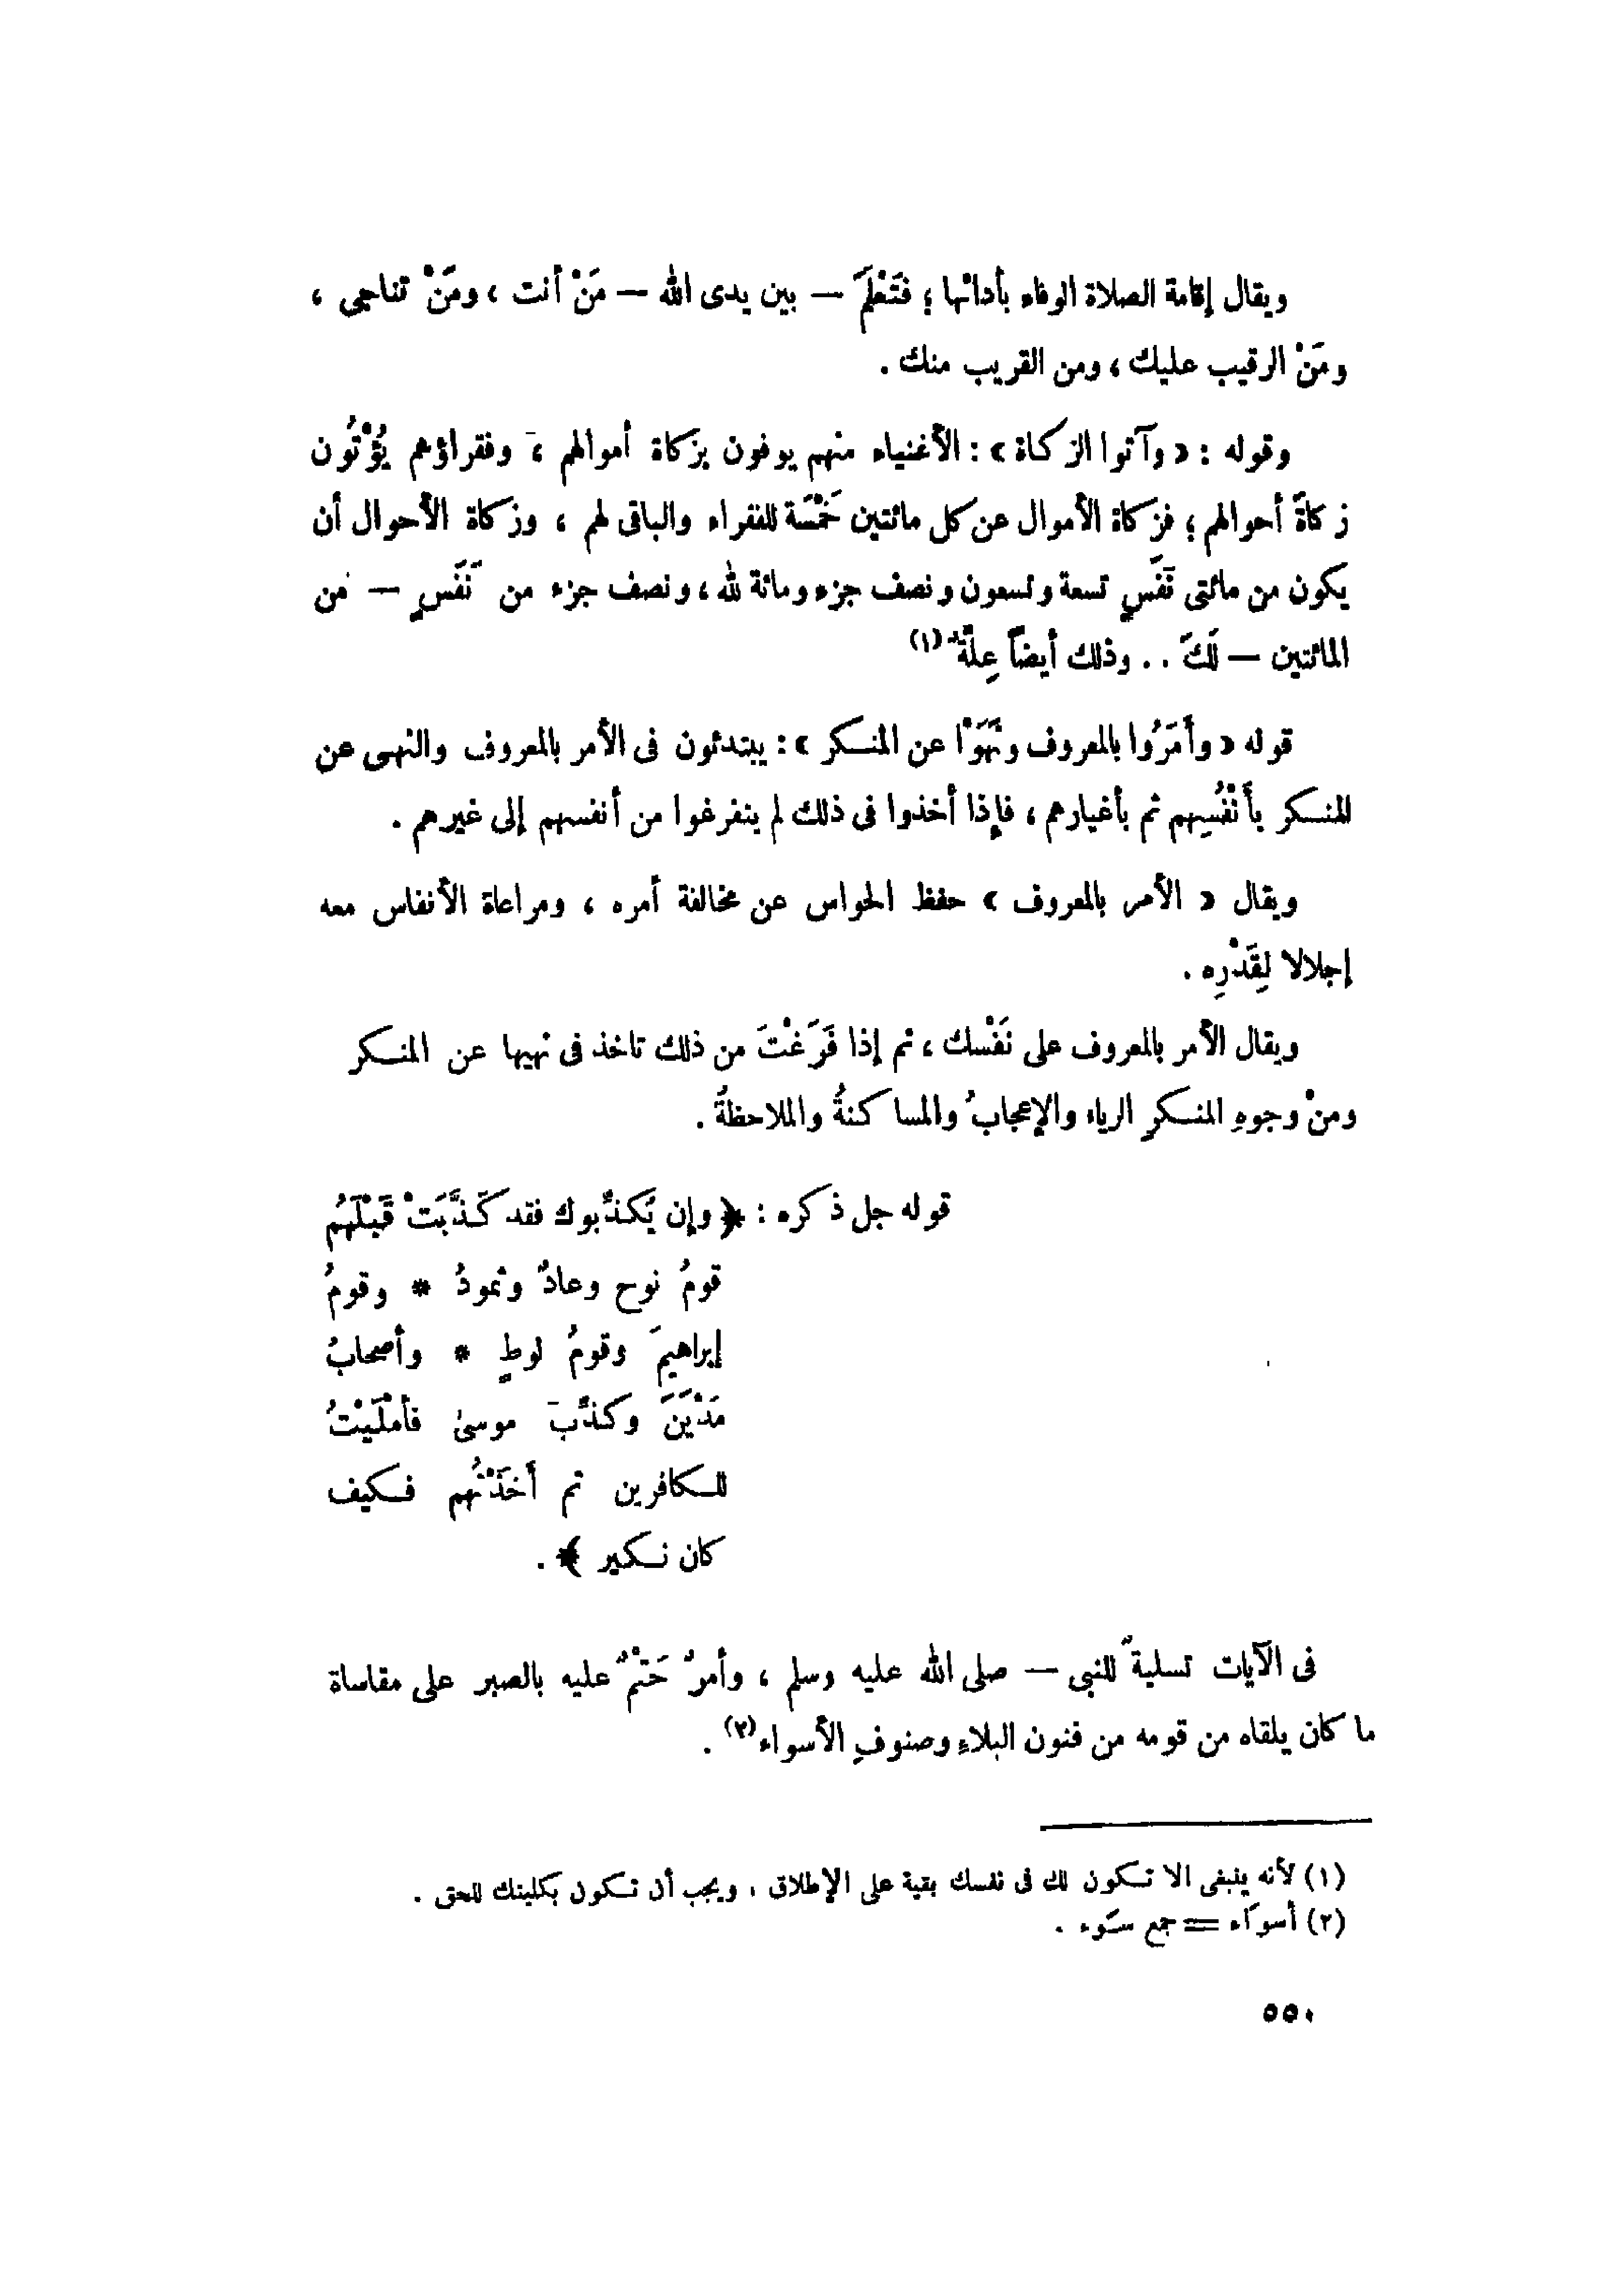 ويقال إقامة الصلاة الوفاء بأدائها ؛ فتَعْلَمَ — بين يدى الله — مَنْ أنت ، ومَنْ تناجى ،
ومَنْ الرقيب عليك ، ومن القريب منك .
وقوله : « وآتوا الزكاة » : الأغنياء منهم يوفون بزكاة أموالهم ، وفقراؤهم يُؤْتُون
زكاةَ أحوالهم ؛ فزكاة الأموال عن كل مائتين خَمْسَة للفقراء والباقى لهم ، وزكاة الأحوال أن
يكون من مائتى نَفَسٍ تسعة وتسعون ونصف جزء ومائة لله ، ونصف جزء من نَفَسٍ — من
المائتين — لَكَ .. وذلك أيضاً عِلَّة (١)
قوله « وأَمَرُوا بالمعروف ونَهَوْا عن المنكر » : يبتدئون فى الأمر بالمعروف والنهى عن
المنكر بأَنْفُسِهم ثم بأغيارهم ، فإذا أخذوا فى ذلك لم يتفرغوا من أنفسهم إلى غيرهم .
ويقال « الأمر بالمعروف » حفظ الحواس عن مخالفة أمره ، ومراعاة الأنفاس معه
إجلالا لِقَدْرِه .
ويقال الأمر بالمعروف على نَفْسك ، ثم إذا فَرَغْتَ من ذلك تاخذ فى نهيها عن المنكر
ومنْ وجوهِ المنكرِ الرياء والإعجابُ والمساكنةُ والملاحظةُ .
قوله جل ذكره : ﴿ وإن يُكذِّبوك فقد كَذَّبَتْ قَبْلَهُم
قومُ نوح وعادٌ وثمودُ * وقومُ
إبراهيمَ وقومُ لوطٍ * وأصحابُ
مَدْيَنَ وكذِّبَ موسىٰ فأمْلَيْتُ
للكافرين ثم أَخَذْتُهم فكيف
كان نكير ﴾ .
فى الآيات تسليةٌ للنبى — صلى الله عليه وسلم ، وأمرٌ حَتْمٌ عليه بالصبر على مقاساة
ما كان يلقاه من قومه من فنون البلاءِ وصنوفِ الأسواء (٢) .
(١) لأنه ينبغى الا تكون لك فى نفسك بقية على الإطلاق ، ويجب أن تكون بكليتك للحق .
(٢) أسوَاء = جمع سَوء .
٥٥٠